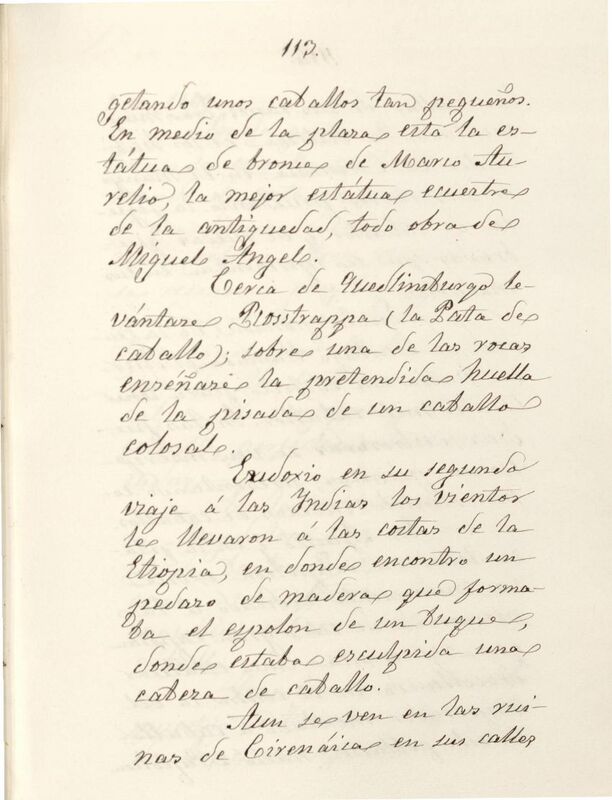 113.
getando unos caballos tan pequeños.
En medio de la plaza está la es-
tátua de bronce de Marco Au
relio, la mejor estátua ecuestre
de la antiguedad, todo obra de
Miguel Angel.
Cerca de Quedlimburgo le
vántase Rosstrappa (la Pata de
caballo); sobre una de las rocas
enséñase la pretendida huella
de la pisada de un caballo
colosal.
Eudoxio en su segundo
viaje á las Indias los vientos
le llevaron á las costas de la
Etiopia, en donde encontro un
pedazo de madera que forma-
ba el espolon de un buque,
donde estaba esculpida una
cabeza de caballo.
Aun se ven en las rui-
nas de Cirenáica en sus calles